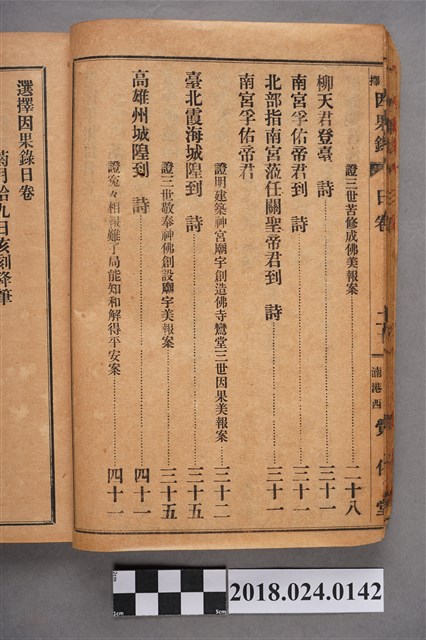 擇因果錄 日卷
證三世苦修成佛美報案 二十八
柳天君登臺 詩 三十一
南宮孚佑帝君到 詩 三十一
北部指南宮蒞任關聖帝君到 詩 三十一
南宮孚佑帝君
證明建築神宮廟宇創造佛寺鸞堂三世因果美報案 三十二
臺北霞海城隍到 詩 三十五
證三世敬奉神佛創設廟宇美報案 三十五
高雄州城隍到 詩 四十一
證寃々相報難了局能知和解得平安案 四十一
選擇因果錄日卷
菊月拾九日亥刻降筆
2018.024.0142